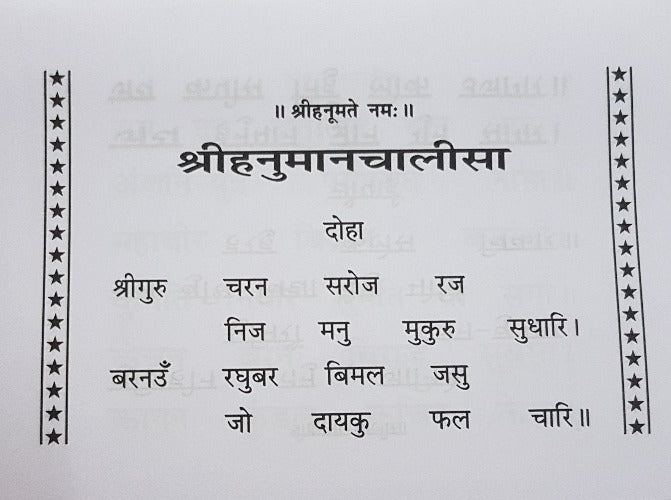 ॥ श्रीहनूमते नमः॥
श्रीहनुमानचालीसा
दोहा
श्रीगुरु चरन सरोज रज
निज मनु मुकुरु सुधारि।
बरनउँ रघुबर बिमल जसु
जो दायकु फल चारि॥